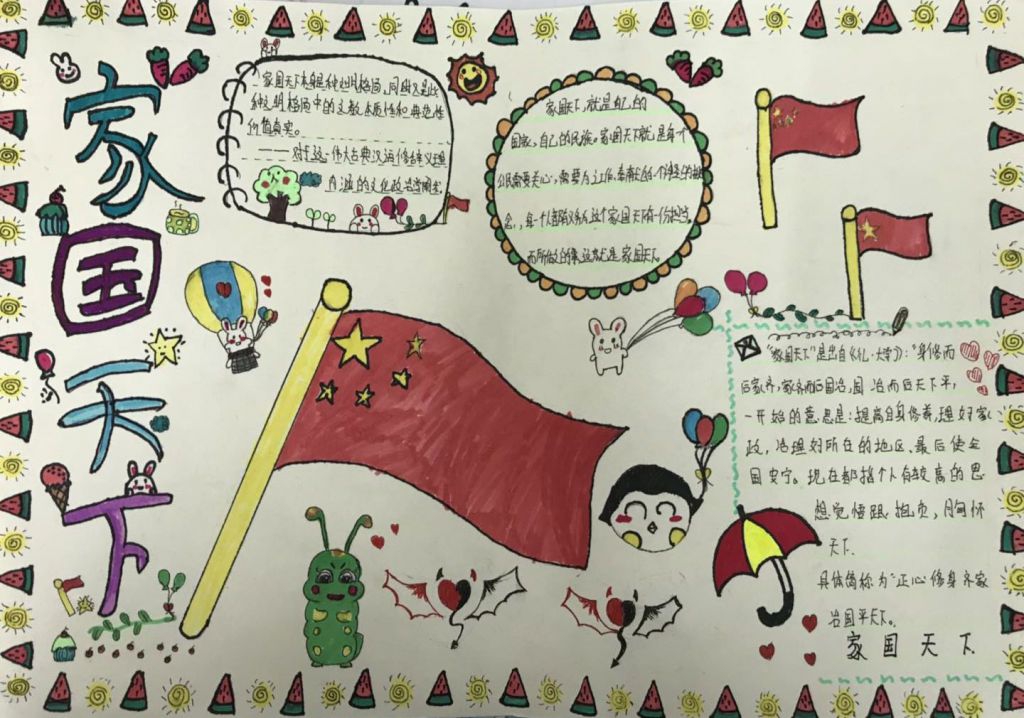 家国天下
家国天下本是种文明格局,同时又是此
种文明格局中的文教本质性和典范性
价值真实。
——对于这一伟大古典汉语修辞义理
内涵的文化政治学阐发
家国天下,就是自己的
国家,自己的民族。家国天下就是每个
公民需要关心,需要为之工作、奉献的一个神圣的概
念,每一个人都有义务为这个家国天下有一份担当。
而所做的事,这就是家国天下。
“家国天下”是出自《礼·大学》:“身修而
后家齐,家齐而后国治,国治而后天下平,
一开始的意思是:提高自身修养,理好家
政,治理好所在的地区,最后使全
国安宁。现在都指个人有较高的思
想觉悟跟抱负,胸怀
天下.
具体简称为“正心修身齐家
治国平天下。
家国天下